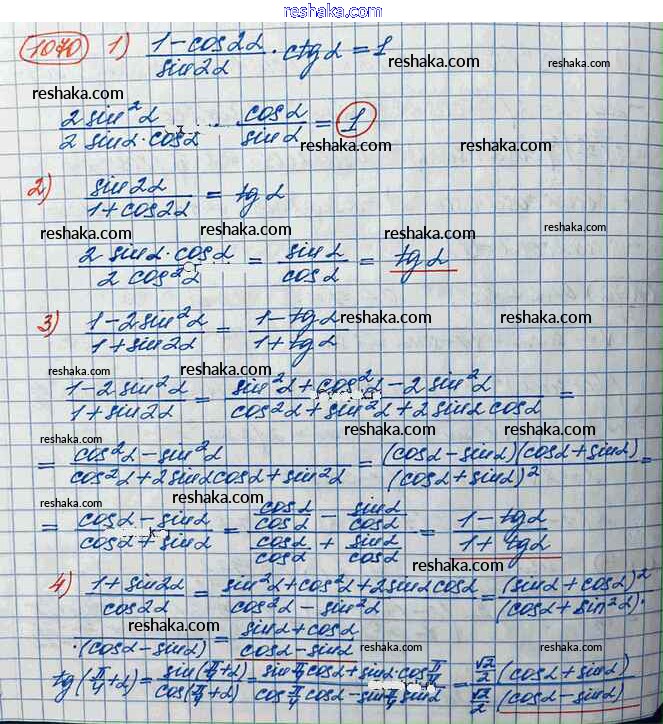 reshaka.com
1070 1) (1-cos2α)/(sin2α) · ctgα = 1
reshaka.com reshaka.com
(2sin²α)/(2sinα·cosα) · (cosα)/(sinα) = 1
reshaka.com reshaka.com
2) (sin2α)/(1+cos2α) = tgα
reshaka.com
reshaka.com reshaka.com
(2sinα·cosα)/(2cos²α) = (sinα)/(cosα) = tgα
reshaka.com reshaka.com
3) (1-2sin²α)/(1+sin2α) = (1-tgα)/(1+tgα)
reshaka.com
reshaka.com
(1-2sin²α)/(1+sin2α) = (sin²α+cos²α-2sin²α)/(cos²α+sin²α+2sinαcosα) =
reshaka.com reshaka.com
= (cos²α-sin²α)/(cos²α+2sinαcosα+sin²α) = ((cosα-sinα)(cosα+sinα))/((cosα+sinα)²) =
reshaka.com reshaka.com
= (cosα-sinα)/(cosα+sinα) = (cosα/cosα - sinα/cosα)/(cosα/cosα + sinα/cosα) = (1-tgα)/(1+tgα)
reshaka.com reshaka.com
4) (1+sin2α)/(cos2α) = (sin²α+cos²α+2sinαcosα)/(cos²α-sin²α) = (sinα+cosα)²/(cosα+sin²α)·
reshaka.com reshaka.com
·(cosα-sinα) = (sinα+cosα)/(cosα-sinα)
reshaka.com reshaka.com
tg(π/4+α) = (sin(π/4+α))/(cos(π/4+α)) = (sinπ/4cosα+sinα·cosπ/4)/(cosπ/4cosα-sinπ/4sinα) = (√2/2(cosα+sinα))/(√2/2(cosα-sinα))
reshaka.com